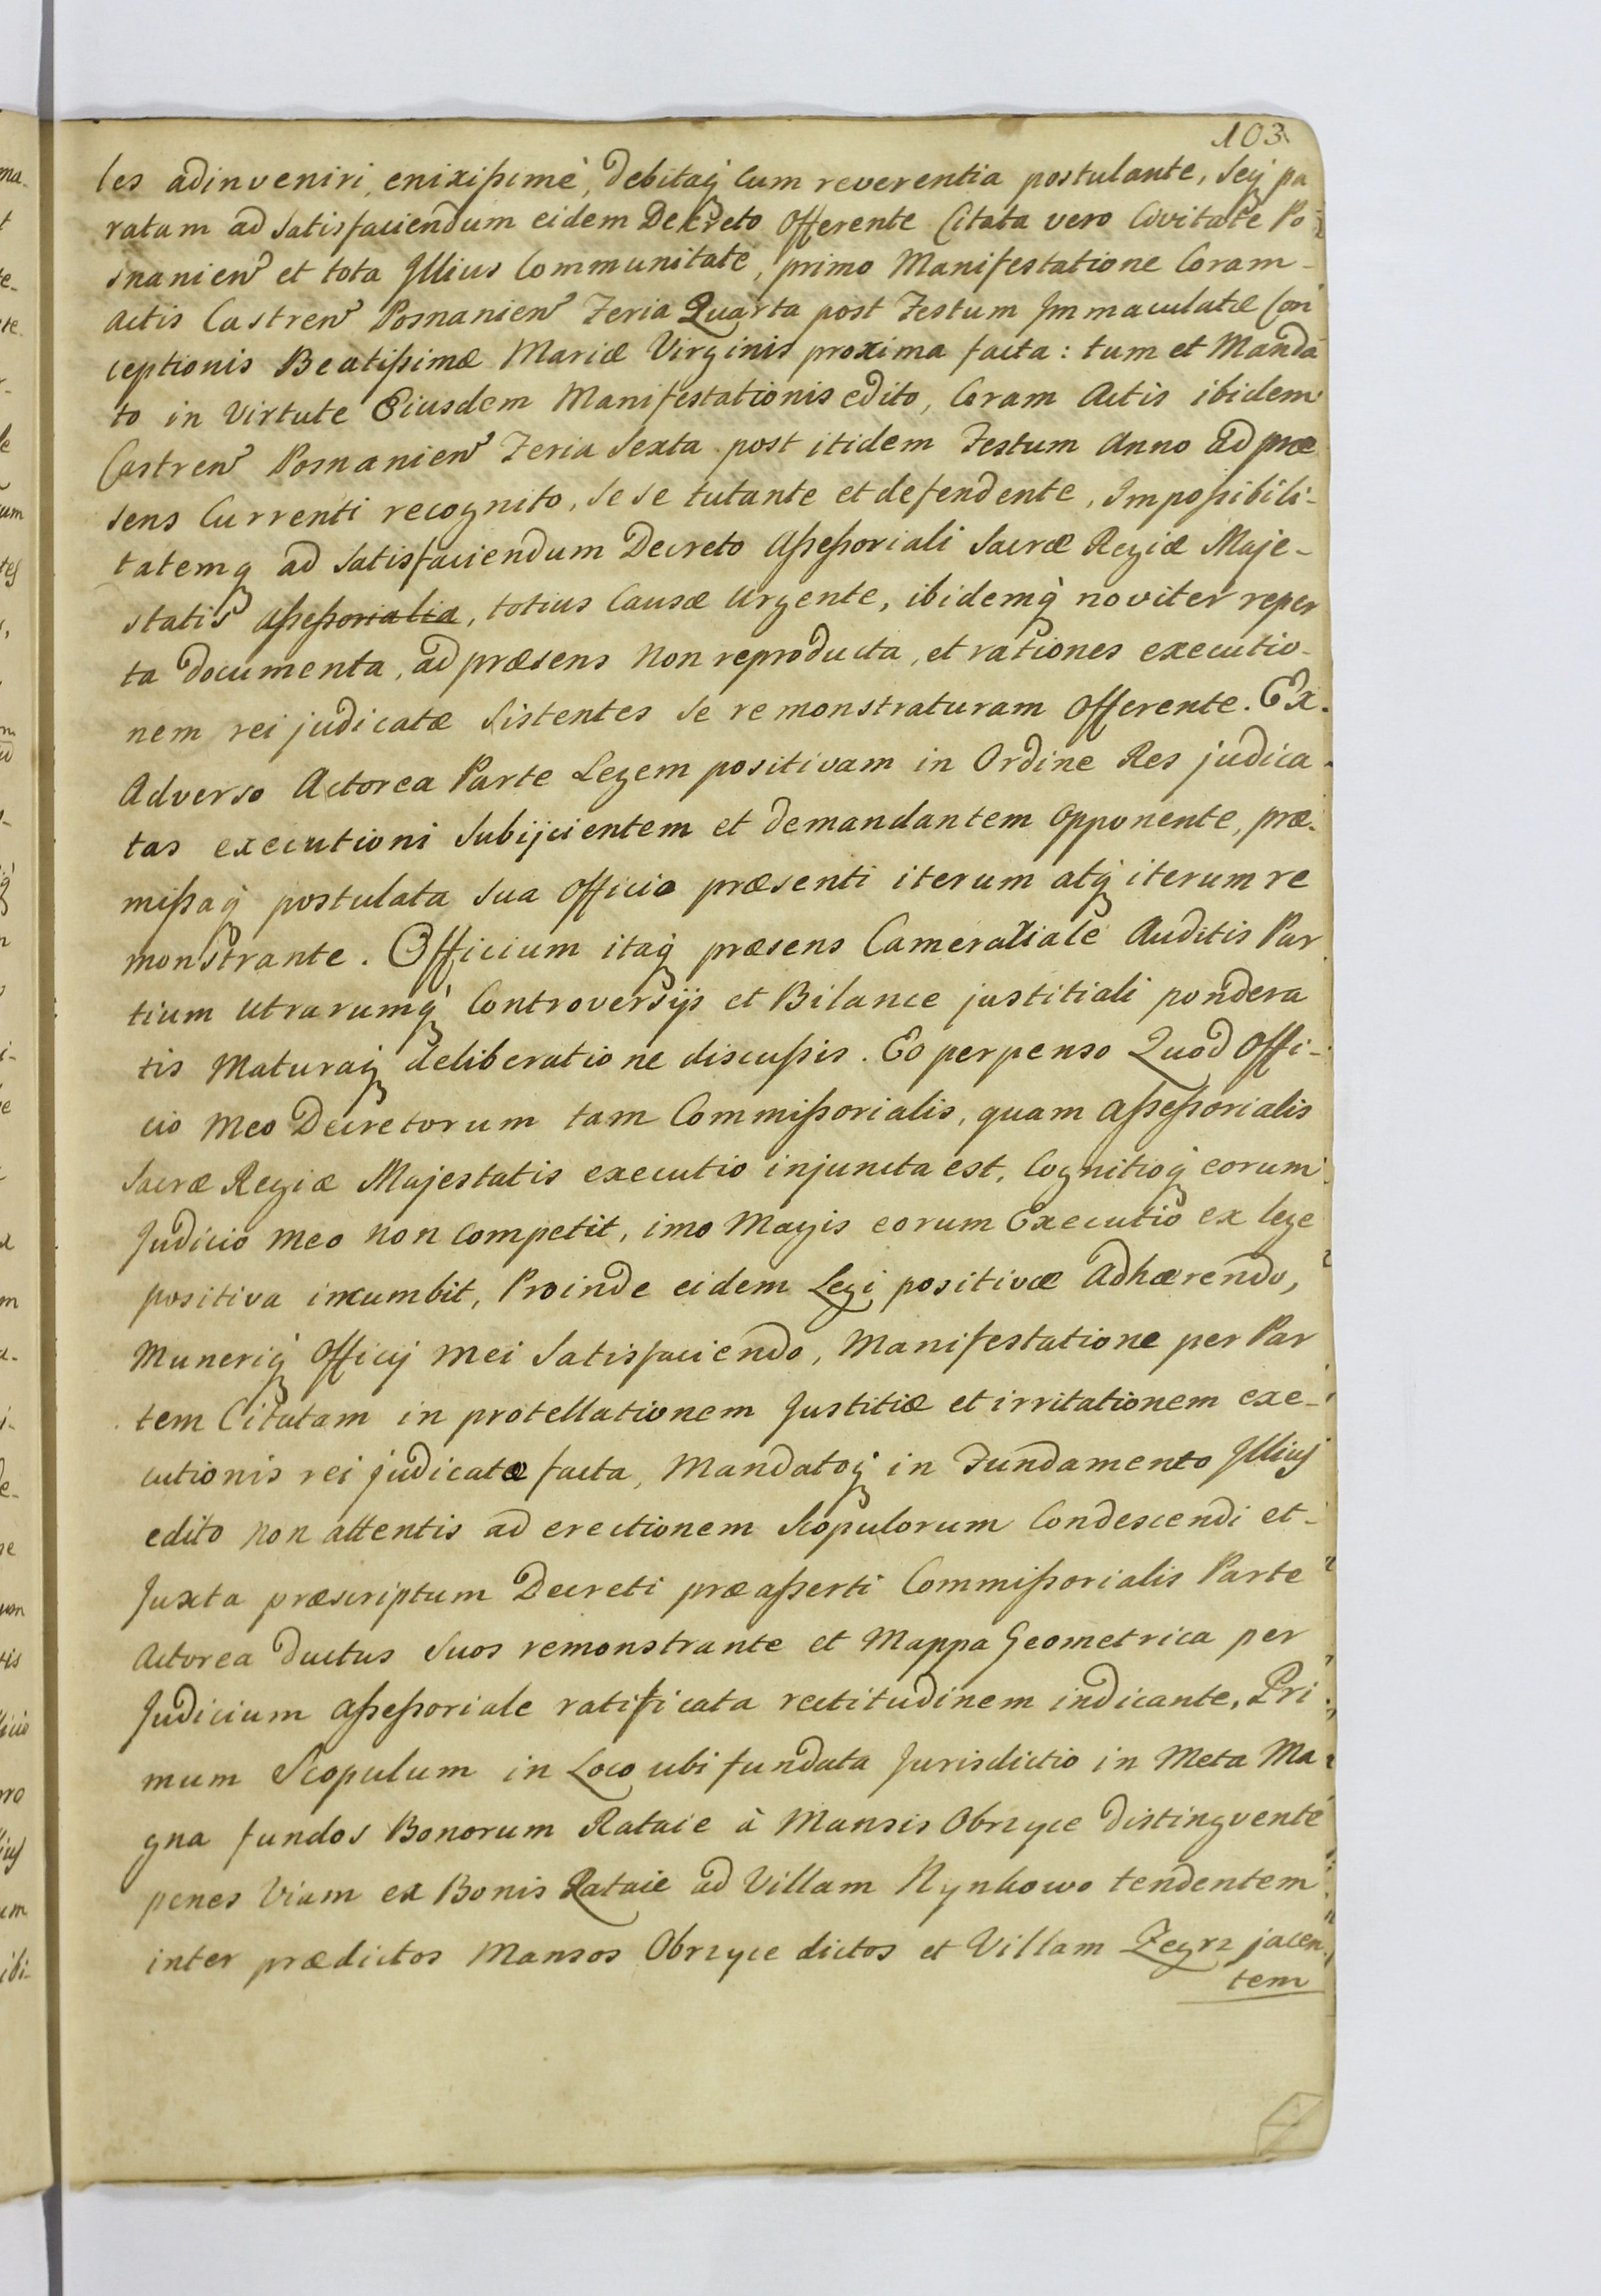 103
les adinveniri, enixißimè, debitaq́ cum reverentia postulante, seq́ pa
ratam ad satisfaciendum eidem Decreto Offerente Citata vero Civitate Po
snanien et tota Jllius Communitate, primo Manifestatione Coram
Actis Castren Posnanien Feria Quarta post Festum Jmmaculatæ Con
ceptionis Beatißimæ Mariæ Virginis proxima facta: tum et Manda
to in Virtute Eiusdem Manifestationis edito, Coram Actis ibidem
Castren Posnanien Feria Sexta post itidem Festum Anno ad præ
sens Currenti recognito, se se tutante et defendente, Impoßibili-
tatemq́ ad satisfaciendum Decreto Aßeßoriali Sacræ Regiæ Maje-
statis Aßeßorialia, totius Causæ Urgente, ibidemq́ noviter reper
ta documenta, ad præsens non reproducta, et rationes executio-
nem rei judicatæ sistentes se remonstraturam Offerente. Ex
Adverso Actorea Parte Legem positivam in Ordine Res judica
tas executioni subijcientem et demandantem opponente, præ
mißaq́ postulata sua officio præsenti iterum atq́ iterum re
monstrante. Officium itaq́ præsens Cameraliale Auditis Par
tium Utrarumq́ Controversijs et Bilance justitiali pondera
tis Maturaq́ deliberatione discußis. Eo perpenso Quod Offi-
cio Meo Decretorum tam Commißorialis, quam Aßeßorialis
Sacræ Regiæ Majestatis executio injuncta est, Cognitioq́ eorum
Judicio meo non Competit, imo Magis eorum Executio ex lege
positiva incumbit, Proinde eidem Legi positivæ Adhærendo,
Muneriq́ Officij mei satisfaciendo, Manifestatione per Par
tem Citatam in protellationem Justitiæ et irritationem exe-
cutionis rei judicatæ facta, Mandatoq́ in Fundamento Jllius
edito non attentis ad erectionem Scopulorum Condescendi et
Juxta præscriptum Decreti præaßerti Commißorialis Parte
Actorea ductus suos remonstrante et Mappa Geometrica per
Judicium Aßeßoriale ratificata rectitudinem indicante, Pri
mum Scopulum in Loco ubi fundata Jurisdictio in Meta Ma
gna fundos Bonorum Rataie à Mansis Obrzyce distingvente
penes Viam ex Bonis Rataie ad Villam Nynkowo tendentem
inter prædictos Mansos Obrzyce dictos et Villam Zegrz jacen
tem